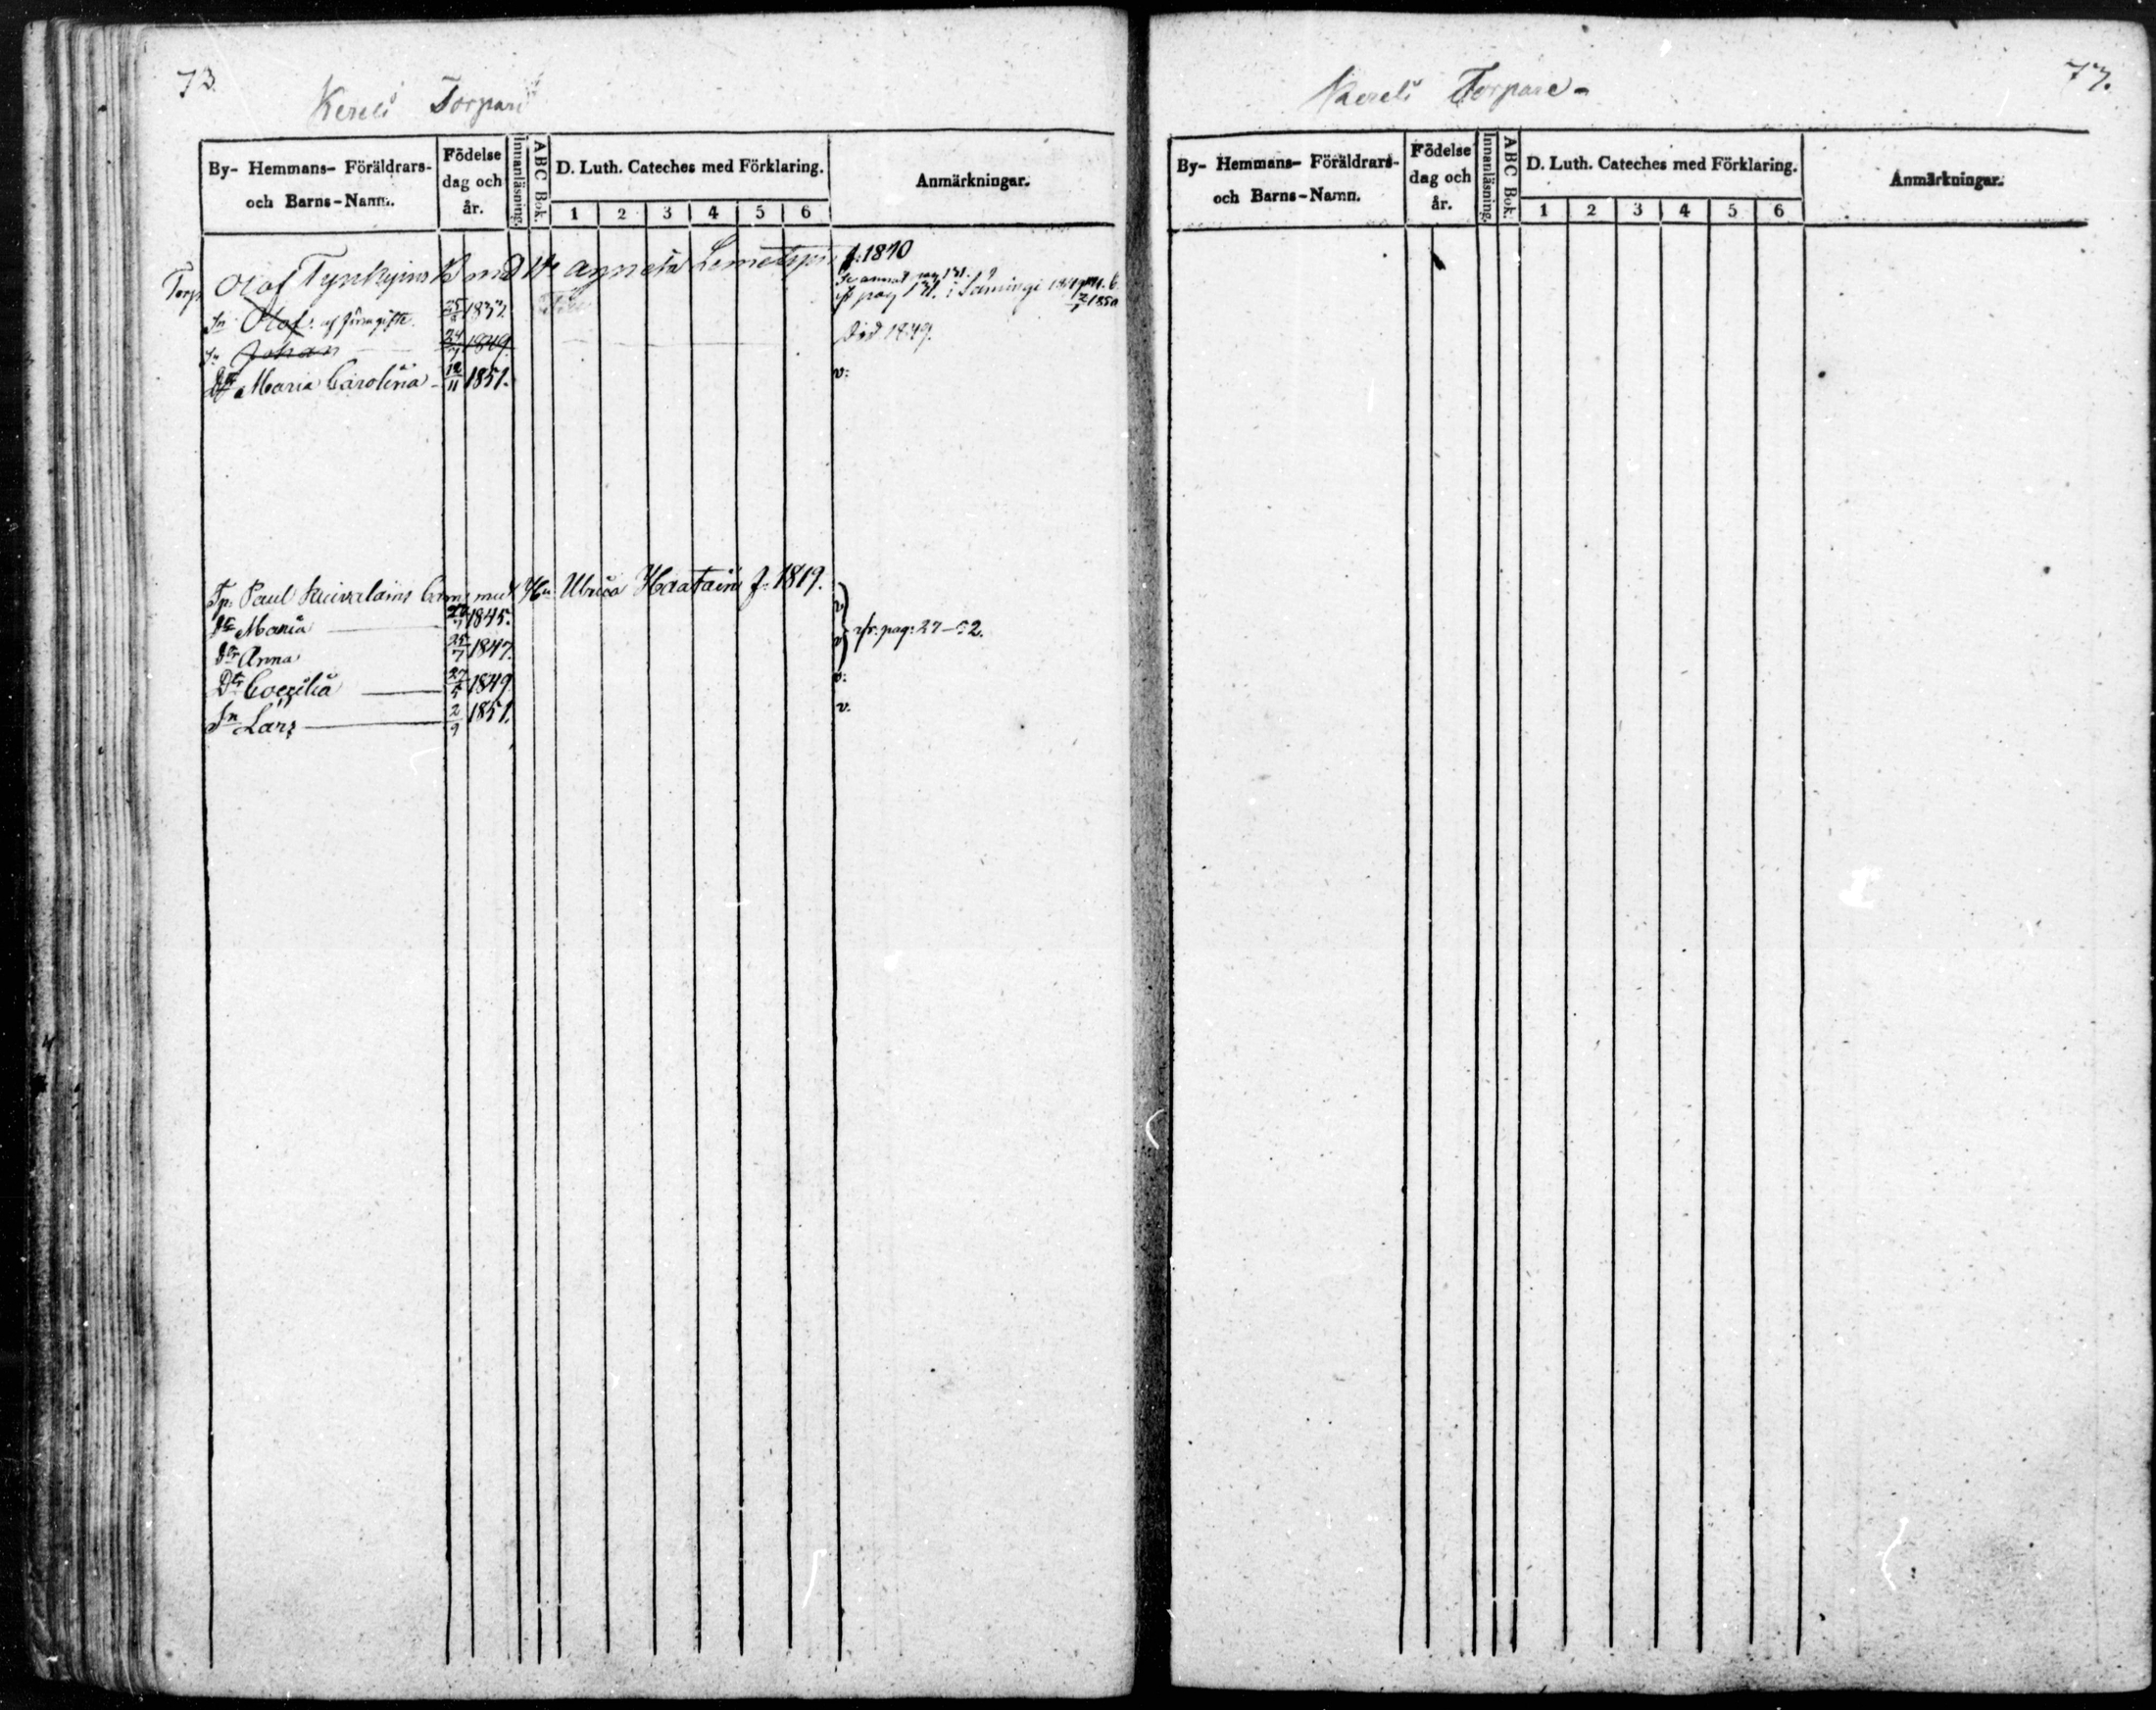 73.
Kereli Torpare
By- Hemmans- Föräldrars- och Barns-Namn.
Födelse dag och år.
Innanläsning.
ABC Bok.
D. Luth. Cateches med Förklaring.
1 2 3 4 5 6
Anmärkningar.
Torp. Olof Tynkyins B. med H. Agneta f. 1810
Sn Olof af förra gifte. 1832
Sn Johan 1849 död 1849.
Dtr Maria Carolina 12/11 1851. v:
Tp. Paul Kuivalains barn med Hu Ulrica Haatain f. 1819.
Dr Maria 1845.
Dr Anna 25/7 1847. pag: 27
Dtr Coecilia 27/5 1849 v:
Sn Lars 2/9 1851. v.
Kereli Torpare
77.
By- Hemmans- Föräldrars- och Barns-Namn.
Födelse dag och år.
Innanläsning.
ABC Bok.
D. Luth. Cateches med Förklaring.
1 2 3 4 5 6
Anmärkningar.